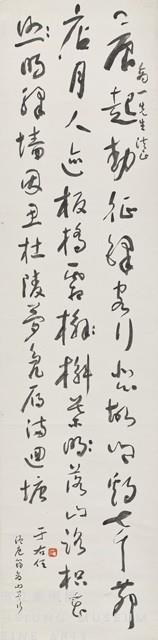 先生法正
晨起動征鐸客行悲故鄉雞聲茅
店月人迹板橋霜槲葉落山路枳花
明驛墻因思杜陵夢鳧雁滿迴塘
于右任
溫庭筠商山早行